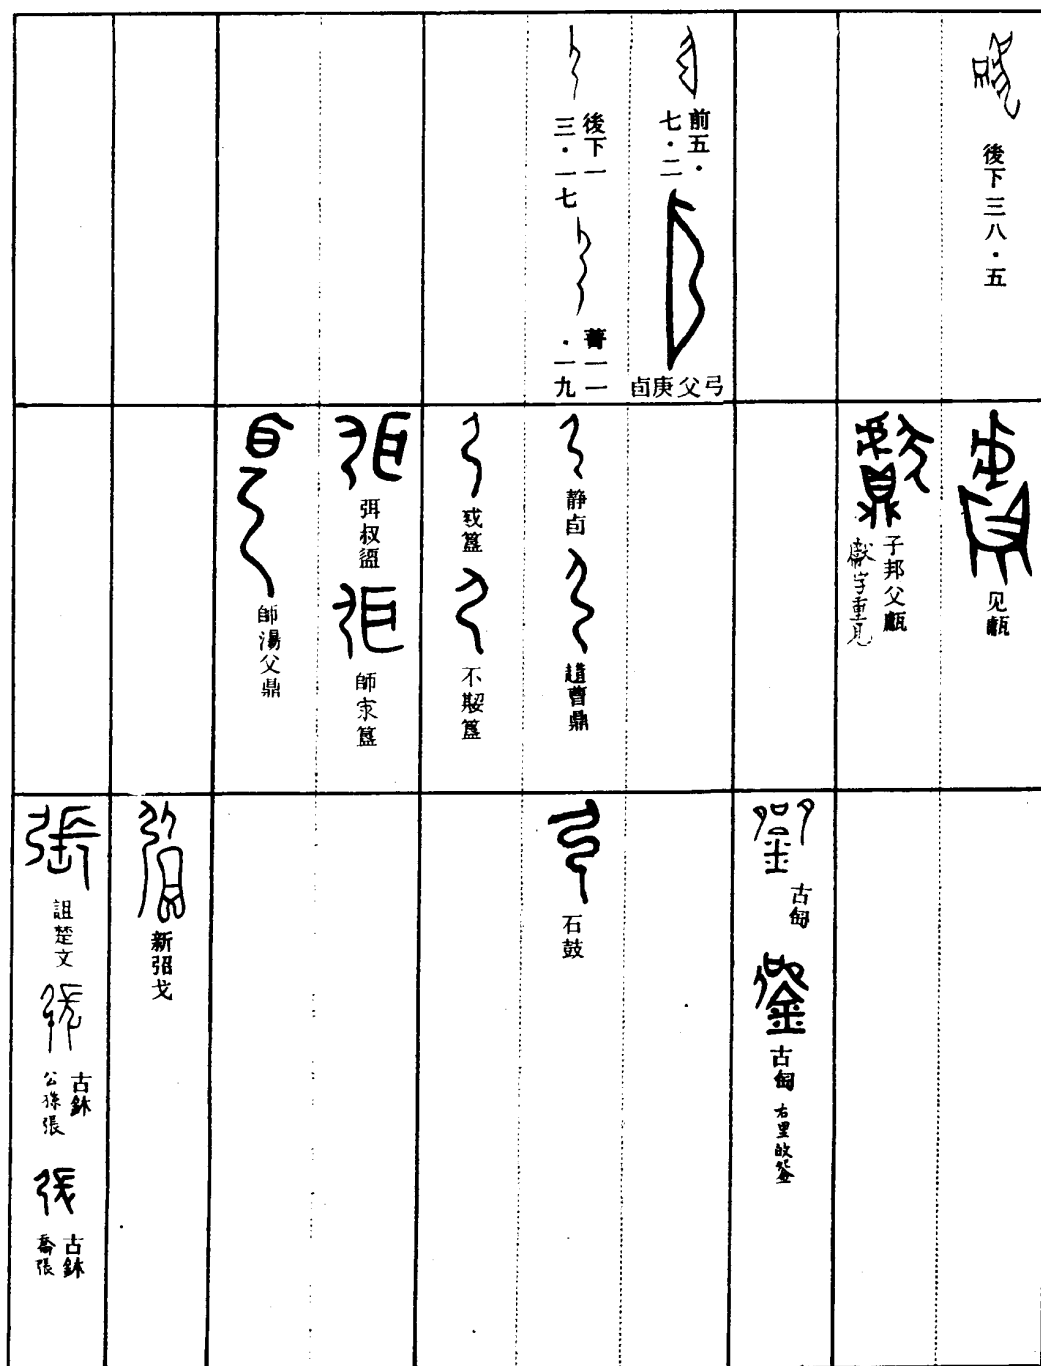 後下三八·五
前五·
七·二
弓父庚卣
後下一
三·一七
菁一一
·一九
见甗
子邦父甗
獻字重見
静卣
趞曹鼎
或簋
不𡢁簋
弭叔盨
師㝨簋
師湯父鼎
古匋
古匋
右里敀鎣
石鼓
新弨戈
詛楚文
古鉨
公孫張
古鉨
喬張